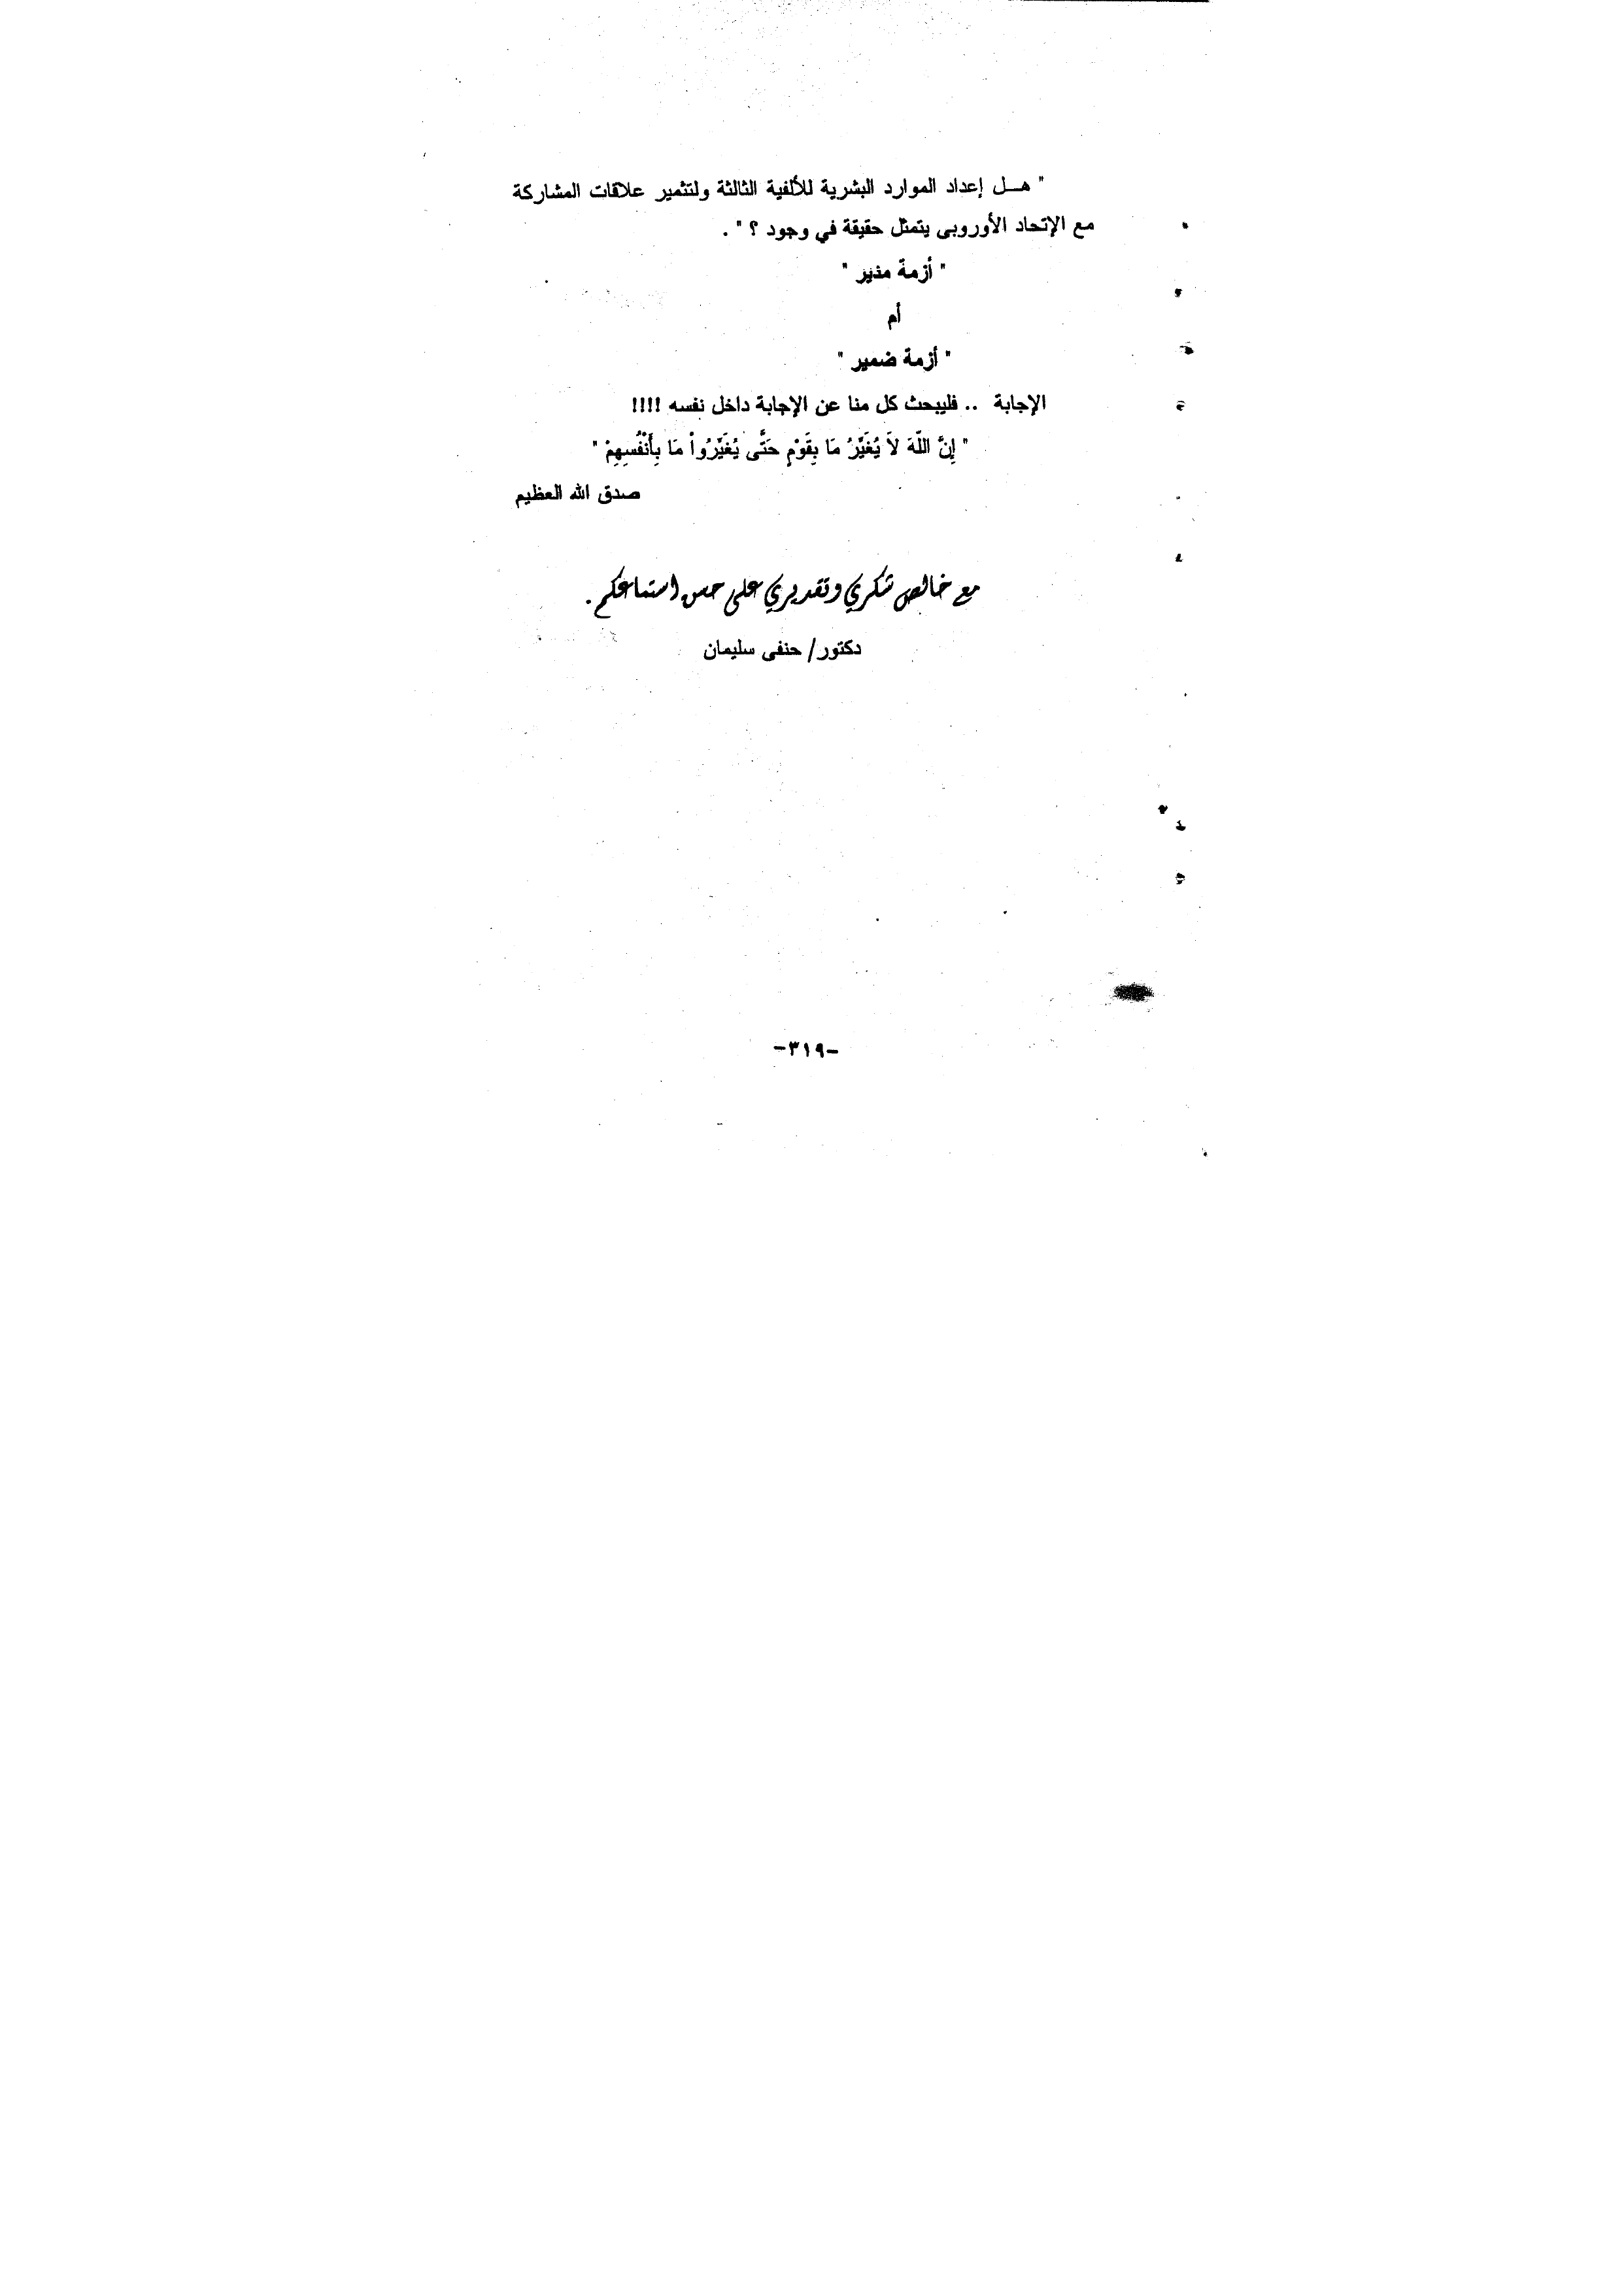 " هـــل إعداد الموارد البشرية للألفية الثالثة ولتثمير علاقات المشاركة
مع الإتحاد الأوروبى يتمثل حقيقة في وجود ؟ " .
" أزمة مدير "
أم
" أزمة ضمير "
الإجابة .. فليبحث كل منا عن الإجابة داخل نفسه !!!!
" إِنَّ اللَّهَ لاَ يُغَيِّرُ مَا بِقَوْمٍ حَتَّى يُغَيِّرُواْ مَا بِأَنْفُسِهِمْ "
صدق الله العظيم
مع خالص شكري وتقديري على حسن استماعكم .
دكتور/ حنفى سليمان
-٣١٩-